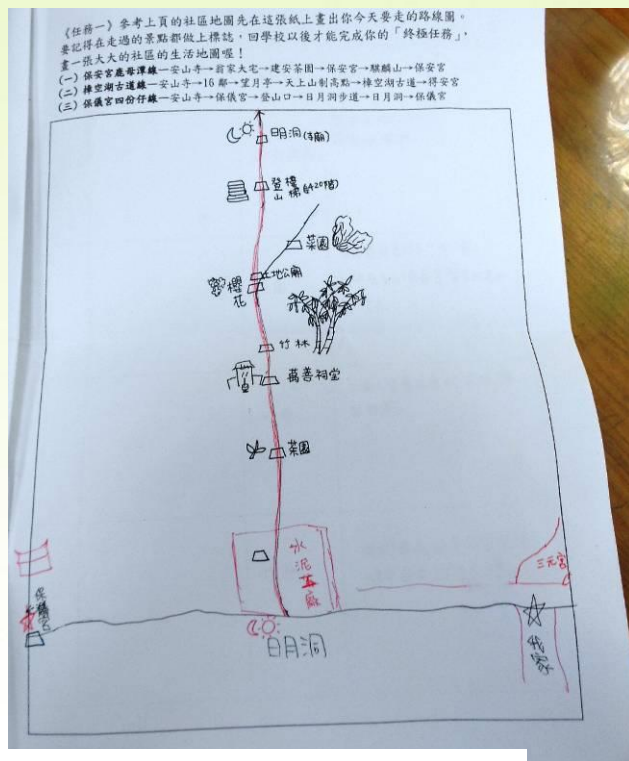 《任務一》參考上頁的社區地圖先在這張紙上畫出你今天要走的路線圖。
要記得在走過的景點都做上標誌,回學校以後才能完成你的「終極任務」,
畫一張大大的社區的生活地圖喔!
(一)保安宮鹿母潭線—安山寺→翁家大宅→建安茶園→保安宮→騏麟山→保安宮
(二)樟空湖古道線—安山寺→16鄰→望月亭→天上山制高點→樟空湖古道→得安宮
(三)保儀宮四份仔線—安山寺→保儀宮→登山口→日月洞步道→日月洞→保儀宮
日月洞(寺廟)
登樓
山梯(約420階)
菜園
土地公廟
櫻花
竹林
萬善祠堂
菜園
水泥工廠
三元宮
保儀宮
我家
日月洞